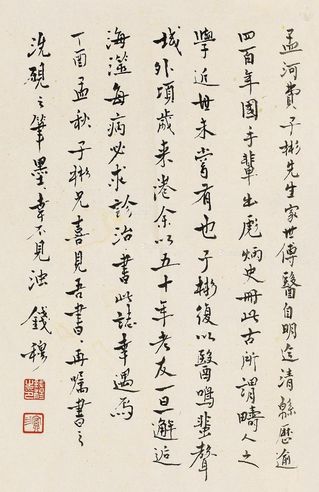 孟河費子彬先生家世傳醫自明迄清緜歷逾
四百年國手輩出彪炳史冊此古所謂疇人之
學近世未嘗有也子彬復以醫鳴蜚聲
域外頃歲來港余以五十年老友一旦邂逅
海澨每病必求診治書此誌幸遇焉
丁酉孟秋子彬兄喜見吾書再囑書之
洗硯之筆墨幸不見浊 錢穆